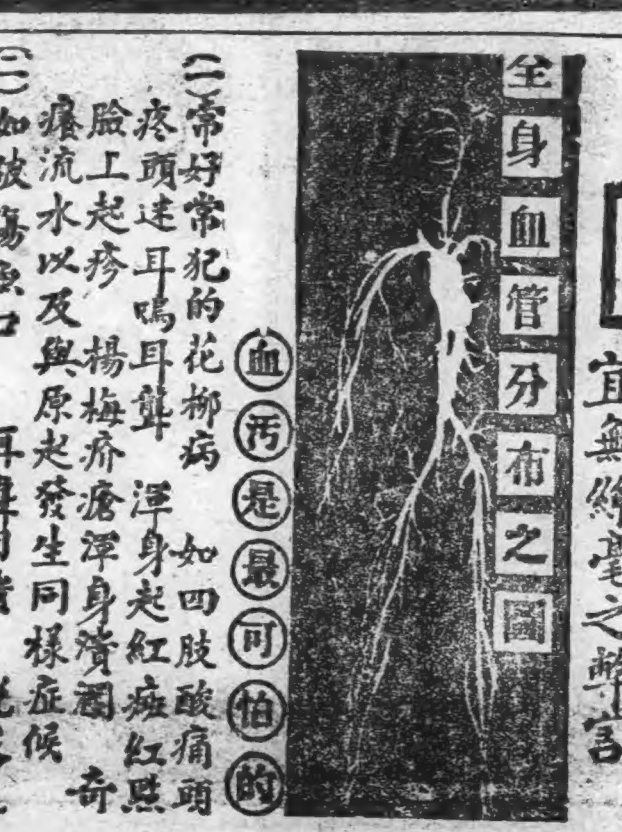 宜無絲毫之弊害
全身血管分布之圖
血污是最可怕的
(一)常好常犯的花柳病 如四肢酸痛頭
疼頭迷耳鳴耳聾 渾身起紅斑紅點
臉上起疹 楊梅疥瘡渾身潰瀾 奇
癢流水以及與原起發生同樣症候
如破傷